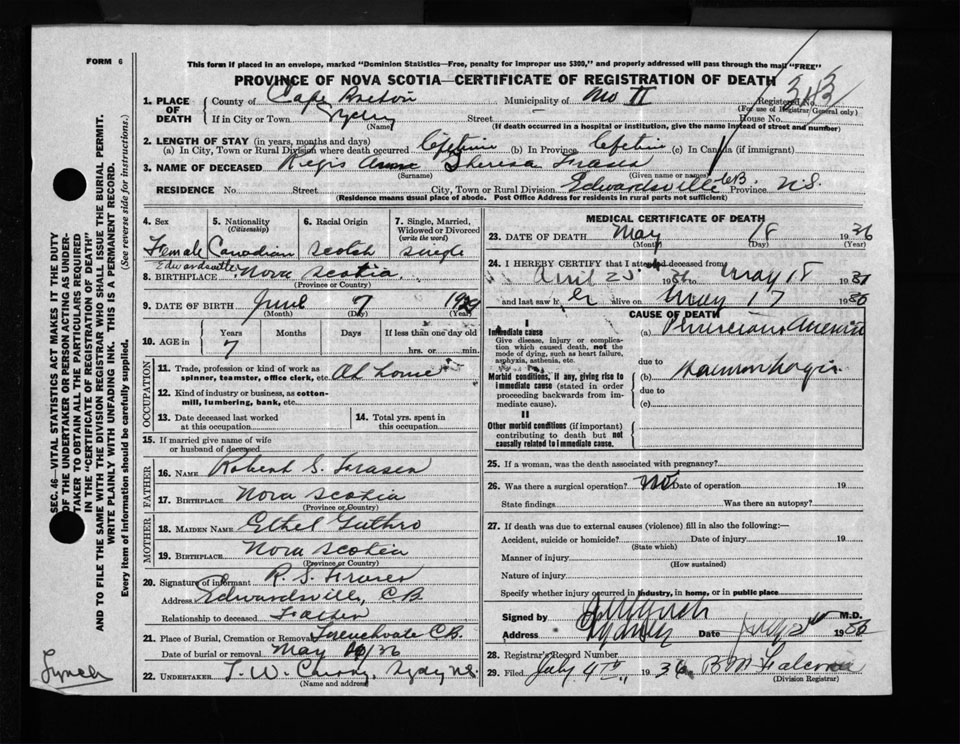 FORM 6
This form if placed in an envelope, marked "Dominion Statistics—Free, penalty for improper use $300," and properly addressed will pass through the mail "FREE"
PROVINCE OF NOVA SCOTIA—CERTIFICATE OF REGISTRATION OF DEATH
1. PLACE OF DEATH County of Cape Breton Municipality of No II Registered No.
(For use of Registrar General only)
If in City or Town Street House No.
(Name) (If death occurred in a hospital or institution, give the name instead of street and number)
2. LENGTH OF STAY (in years, months and days)
(a) In City, Town or Rural Division where death occurred Lifetime (b) In Province Lifetime (c) In Canada (if immigrant)
3. NAME OF DECEASED Regis Anne Theresa Fraser
(Surname) (Given name or names)
RESIDENCE No. Street City, Town or Rural Division Edwardsville C.B. Province N.S.
(Residence means usual place of abode. Post Office Address for residents in rural parts not sufficient)
4. Sex 5. Nationality (Citizenship) 6. Racial Origin 7. Single, Married, Widowed or Divorced (write the word)
Female Canadian Scotch Single
Edwardsville
8. BIRTHPLACE Nova Scotia
(Province or Country)
9. DATE OF BIRTH June 7
(Month) (Day) (Year)
10. AGE in Years Months Days If less than one day old
7 hrs. or min.
OCCUPATION
11. Trade, profession or kind of work as spinner, teamster, office clerk, etc. At home
12. Kind of industry or business, as cotton-mill, lumbering, bank, etc.
13. Date deceased last worked at this occupation 14. Total yrs. spent in this occupation
15. If married give name of wife or husband of deceased
FATHER
16. NAME Robert S. Fraser
17. BIRTHPLACE Nova Scotia
(Province or Country)
MOTHER
18. MAIDEN NAME Ethel Guthro
19. BIRTHPLACE Nova Scotia
(Province or Country)
20. Signature of informant R. S. Fraser
Address Edwardsville, C.B.
Relationship to deceased Father
21. Place of Burial, Cremation or Removal Frenchvale C.B.
Date of burial or removal May /36
22. UNDERTAKER T. W. Curry, Sydney N.S.
MEDICAL CERTIFICATE OF DEATH
23. DATE OF DEATH May 18 1936
(Month) (Day) (Year)
24. I HEREBY CERTIFY that I attended deceased from
April 25 1936 to May 18 193
and last saw her alive on May 17 1936
CAUSE OF DEATH
I
Immediate cause
Give disease, injury or complication which caused death, not the mode of dying, such as heart failure, asphyxia, asthenia, etc.
(a) Pernicious Anemia
due to
Morbid conditions, if any, giving rise to immediate cause (stated in order proceeding backwards from immediate cause).
(b)
due to
(c)
II
Other morbid conditions (if important) contributing to death but not causally related to immediate cause.
25. If a woman, was the death associated with pregnancy?
26. Was there a surgical operation? No Date of operation 19
State findings Was there an autopsy?
27. If death was due to external causes (violence) fill in also the following:—
Accident, suicide or homicide? Date of injury 19
(State which)
Manner of injury
(How sustained)
Nature of injury
Specify whether injury occurred in industry, in home, or in public place
Signed by Lynch M.D.
Address Sydney Date 1936
28. Registrar's Record Number
29. Filed July 4th 1936
(Division Registrar)
SEC. 46—VITAL STATISTICS ACT MAKES IT THE DUTY
OF THE UNDERTAKER OR PERSON ACTING AS UNDER-
TAKER TO OBTAIN ALL THE PARTICULARS REQUIRED
IN THE "CERTIFICATE OF REGISTRATION OF DEATH"
AND TO FILE THE SAME WITH THE DIVISION REGISTRAR WHO SHALL ISSUE THE BURIAL PERMIT.
WRITE PLAINLY WITH UNFADING INK. THIS IS A PERMANENT RECORD.
Every item of information should be carefully supplied. (See reverse side for instructions.)
Lynch